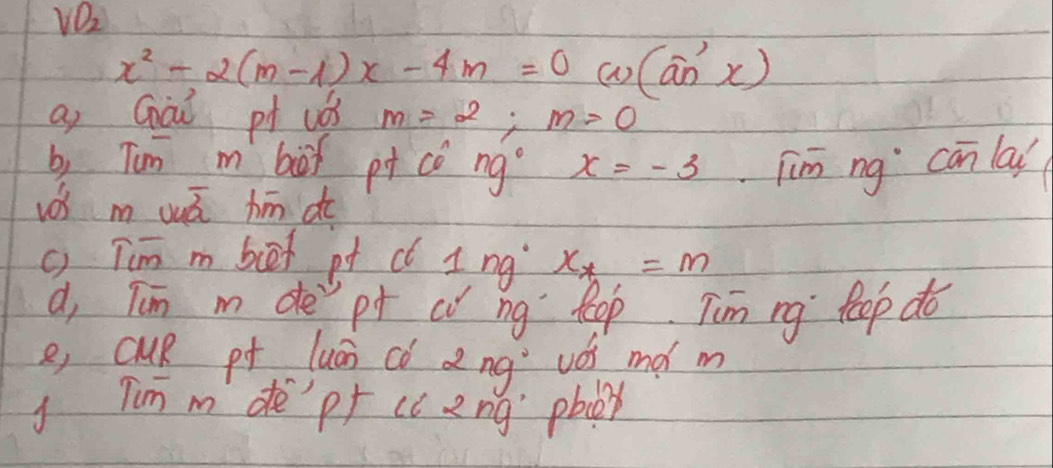 VD2
x² - 2(m-1)x - 4m = 0 (1) (ẩn x)
a, Giải pt với m = 2 ; m = 0
b, Tìm m biết pt có ng° x = -3 . Tìm ng° còn lại
với m vừa tìm đc
c) Tìm m biết pt có 1 ng° x* = m
d, Tìm m để pt có ng° kép . Tìm ng° kép đó
e, CMR pt luôn có 2 ng° với mọi m
f Tìm m để pt có 2 ng° pbiệt